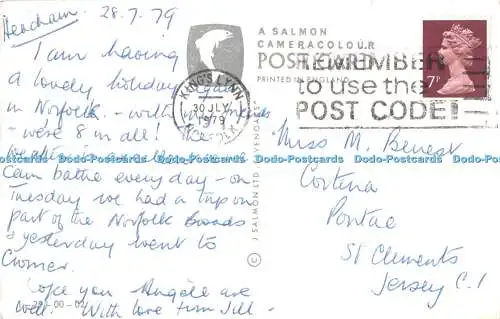 Heacham. 28.7.79
I am having
a lovely holiday again
in Norfolk - with my friends
- were 8 in all! The
weather is
Can bathe every day - on
Tuesday we had a trip on
part of the Norfolk Broads
& yesterday went to
Cromer.
Hope you Angèle are
well. With love from Jill -
28-00-02
A SALMON
CAMERACOLOUR
POSTCARD
PRINTED IN ENGLAND
KING'S LYNN
30 JLY
1979
NORFOLK
REMEMBER
to use the
POST CODE!
7P
© J SALMON LTD SEVENOAKS
Miss M. Benest
Cortina
Pontac
St Clements
Jersey C.I
Dodo-Postcards Dodo-Postcards Dodo-Postcards Dodo-Postcards Dodo-Postcards Dodo-Postcards